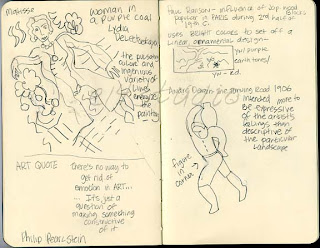 Matisse
woman in
a purple coat
Lydia
Delectorskaya
the pulsing
colors and
ingenious
variety of
lines
energize
the
Painting
ART QUOTE
There's no way to
get rid of
emotion in ART...
... It's just a
question of
making something
constructive
of it
Philip Pearlstein
Paul Ranson - influence of Jap wood
Blocks
popular in PARIS during 2nd half of
19th C.
uses BRIGHT COLORS to set off a
Linear, ornamental design -
yel/purple
earth tones/
yel - red.
Andre Derain the Turning Road 1906
intended more to
Be expressive
of the artist's
feelings than
descriptive of
the particular
Landscape
Figure
in
corner